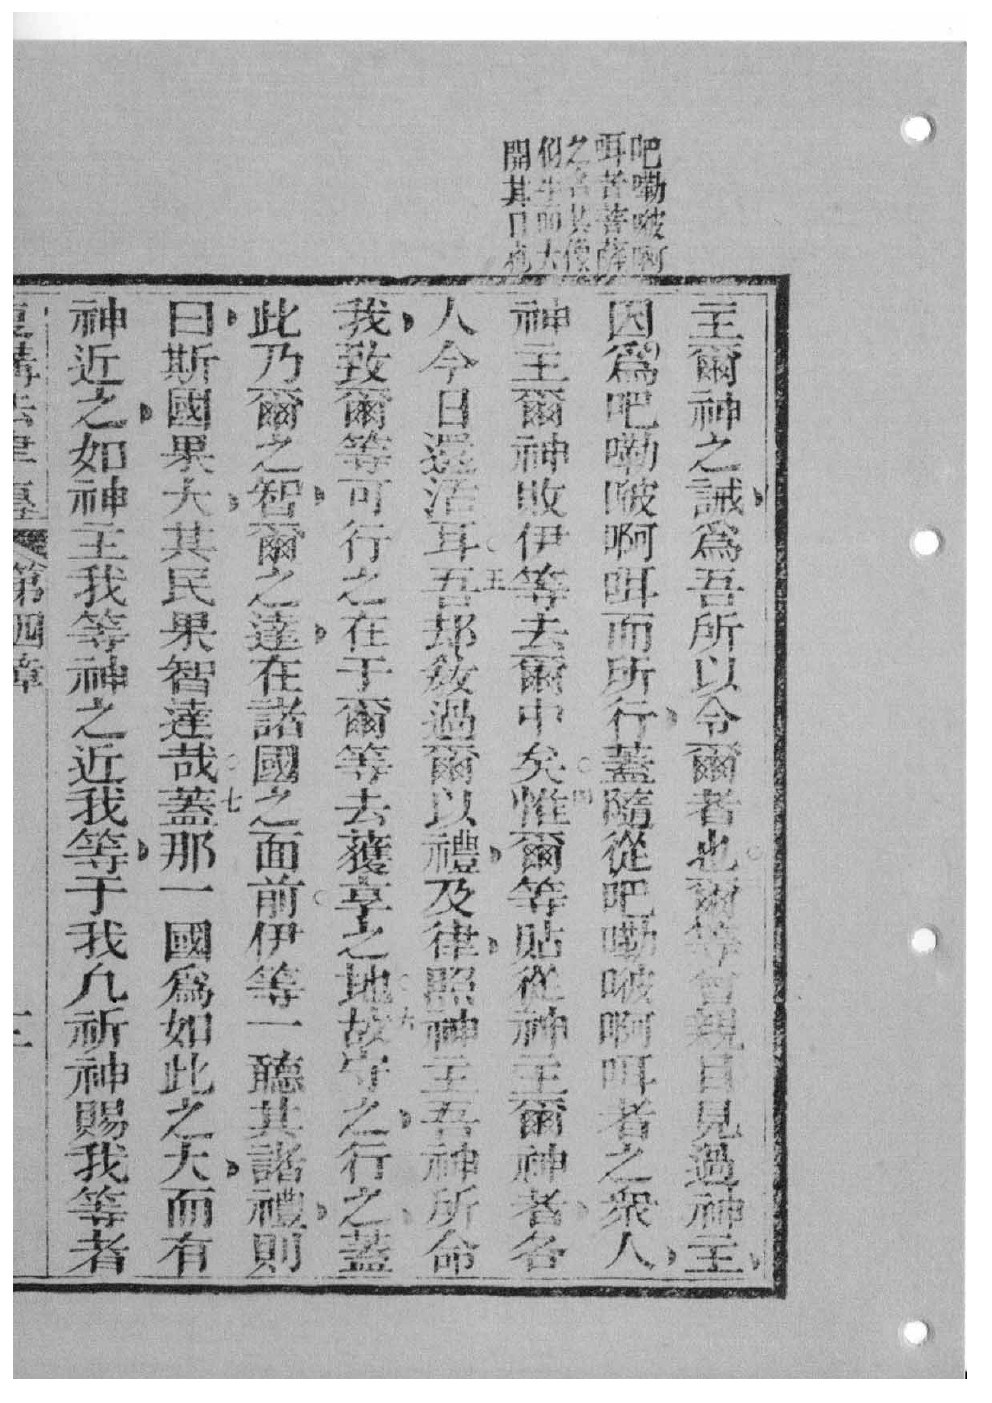 吧嘞啵啊
咡者菩薩
之名其像
似生而大
開其口也
主爾神之誡為吾所以令爾者也爾等曾親目見過神主
因為吧嘞啵啊咡而所行蓋隨從吧嘞啵啊咡者之衆人
神主爾神敗伊等去爾中矣四惟爾等貼從神主爾神者各
人今日還活耳五吾却教過爾以禮及律照神主吾神所命
我致爾等可行之在于爾等去獲享之地六故守之行之蓋
此乃爾之智爾之達在諸國之面前伊等一聽其諸禮則
曰斯國果大其民果智達哉七蓋那一國為如此之大而有
神近之如神主我等神之近我等于我凡祈神賜我等者
復講法律 第四章 三